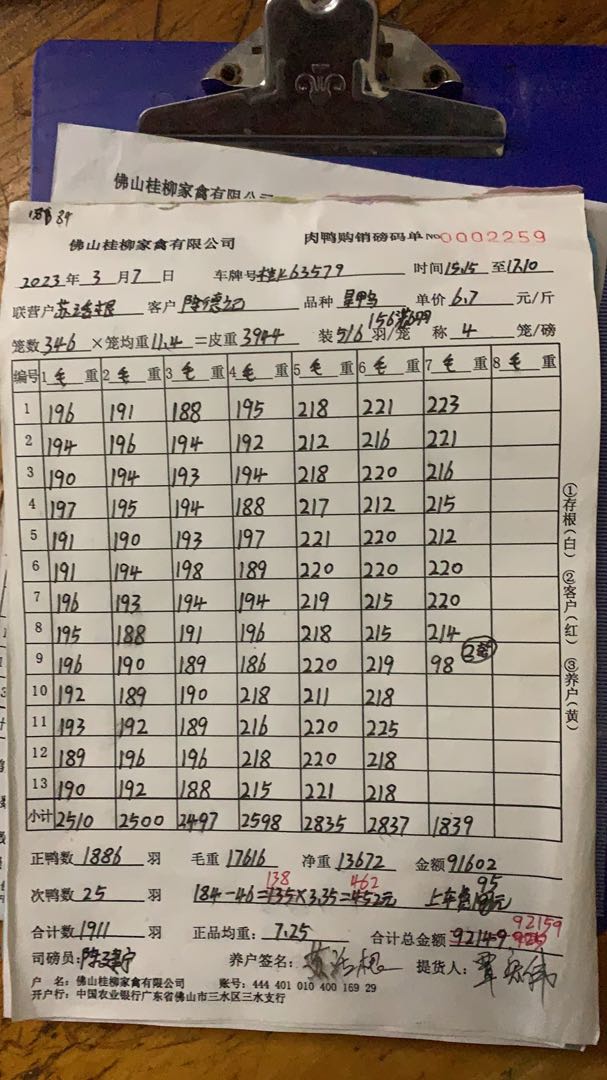 佛山桂柳家禽有限公司
89
佛山桂柳家禽有限公司 肉鸭购销磅码单 No 0002259
2023 年 3 月 7 日 车牌号 63579 时间 15.15 至 17.10
联营户 苏 根 客户 陈德 品种 鸭 单价 6.7 元/斤
笼数 346 ×笼均重 11.4 =皮重 3944 装 5/6 羽/笼 称 4 笼/磅
编号 1 毛 重 2 毛 重 3 毛 重 4 毛 重 5 毛 重 6 毛 重 7 毛 重 8 毛 重
1 196 191 188 195 218 221 223
2 194 196 194 192 212 216 221
3 190 194 193 194 218 220 216
4 197 195 194 188 217 212 215
5 191 190 193 197 221 220 212
6 191 194 198 189 220 220 220
7 196 193 194 194 219 215 220
8 195 188 191 196 218 215 214
9 196 190 189 186 220 219 98
10 192 189 190 218 211 218
11 193 192 189 216 220 225
12 189 196 196 218 220 218
13 190 192 188 215 221 218
小计 2510 2500 2497 2598 2835 2837 1839
正鸭数 1886 羽 毛重 17616 净重 13672 金额 91602
138 462 95
次鸭数 25 羽 184-46=135×3.35=452元 上车费 元
92159
合计数 1911 羽 正品均重: 7.25 合计总金额 92149
司磅员: 陈建宁 养户签名: 提货人:
户 名: 佛山桂柳家禽有限公司 账号: 444 401 010 400 169 29
开户行: 中国农业银行广东省佛山市三水区三水支行
①存根(白) ②客户(红) ③养户(黄)